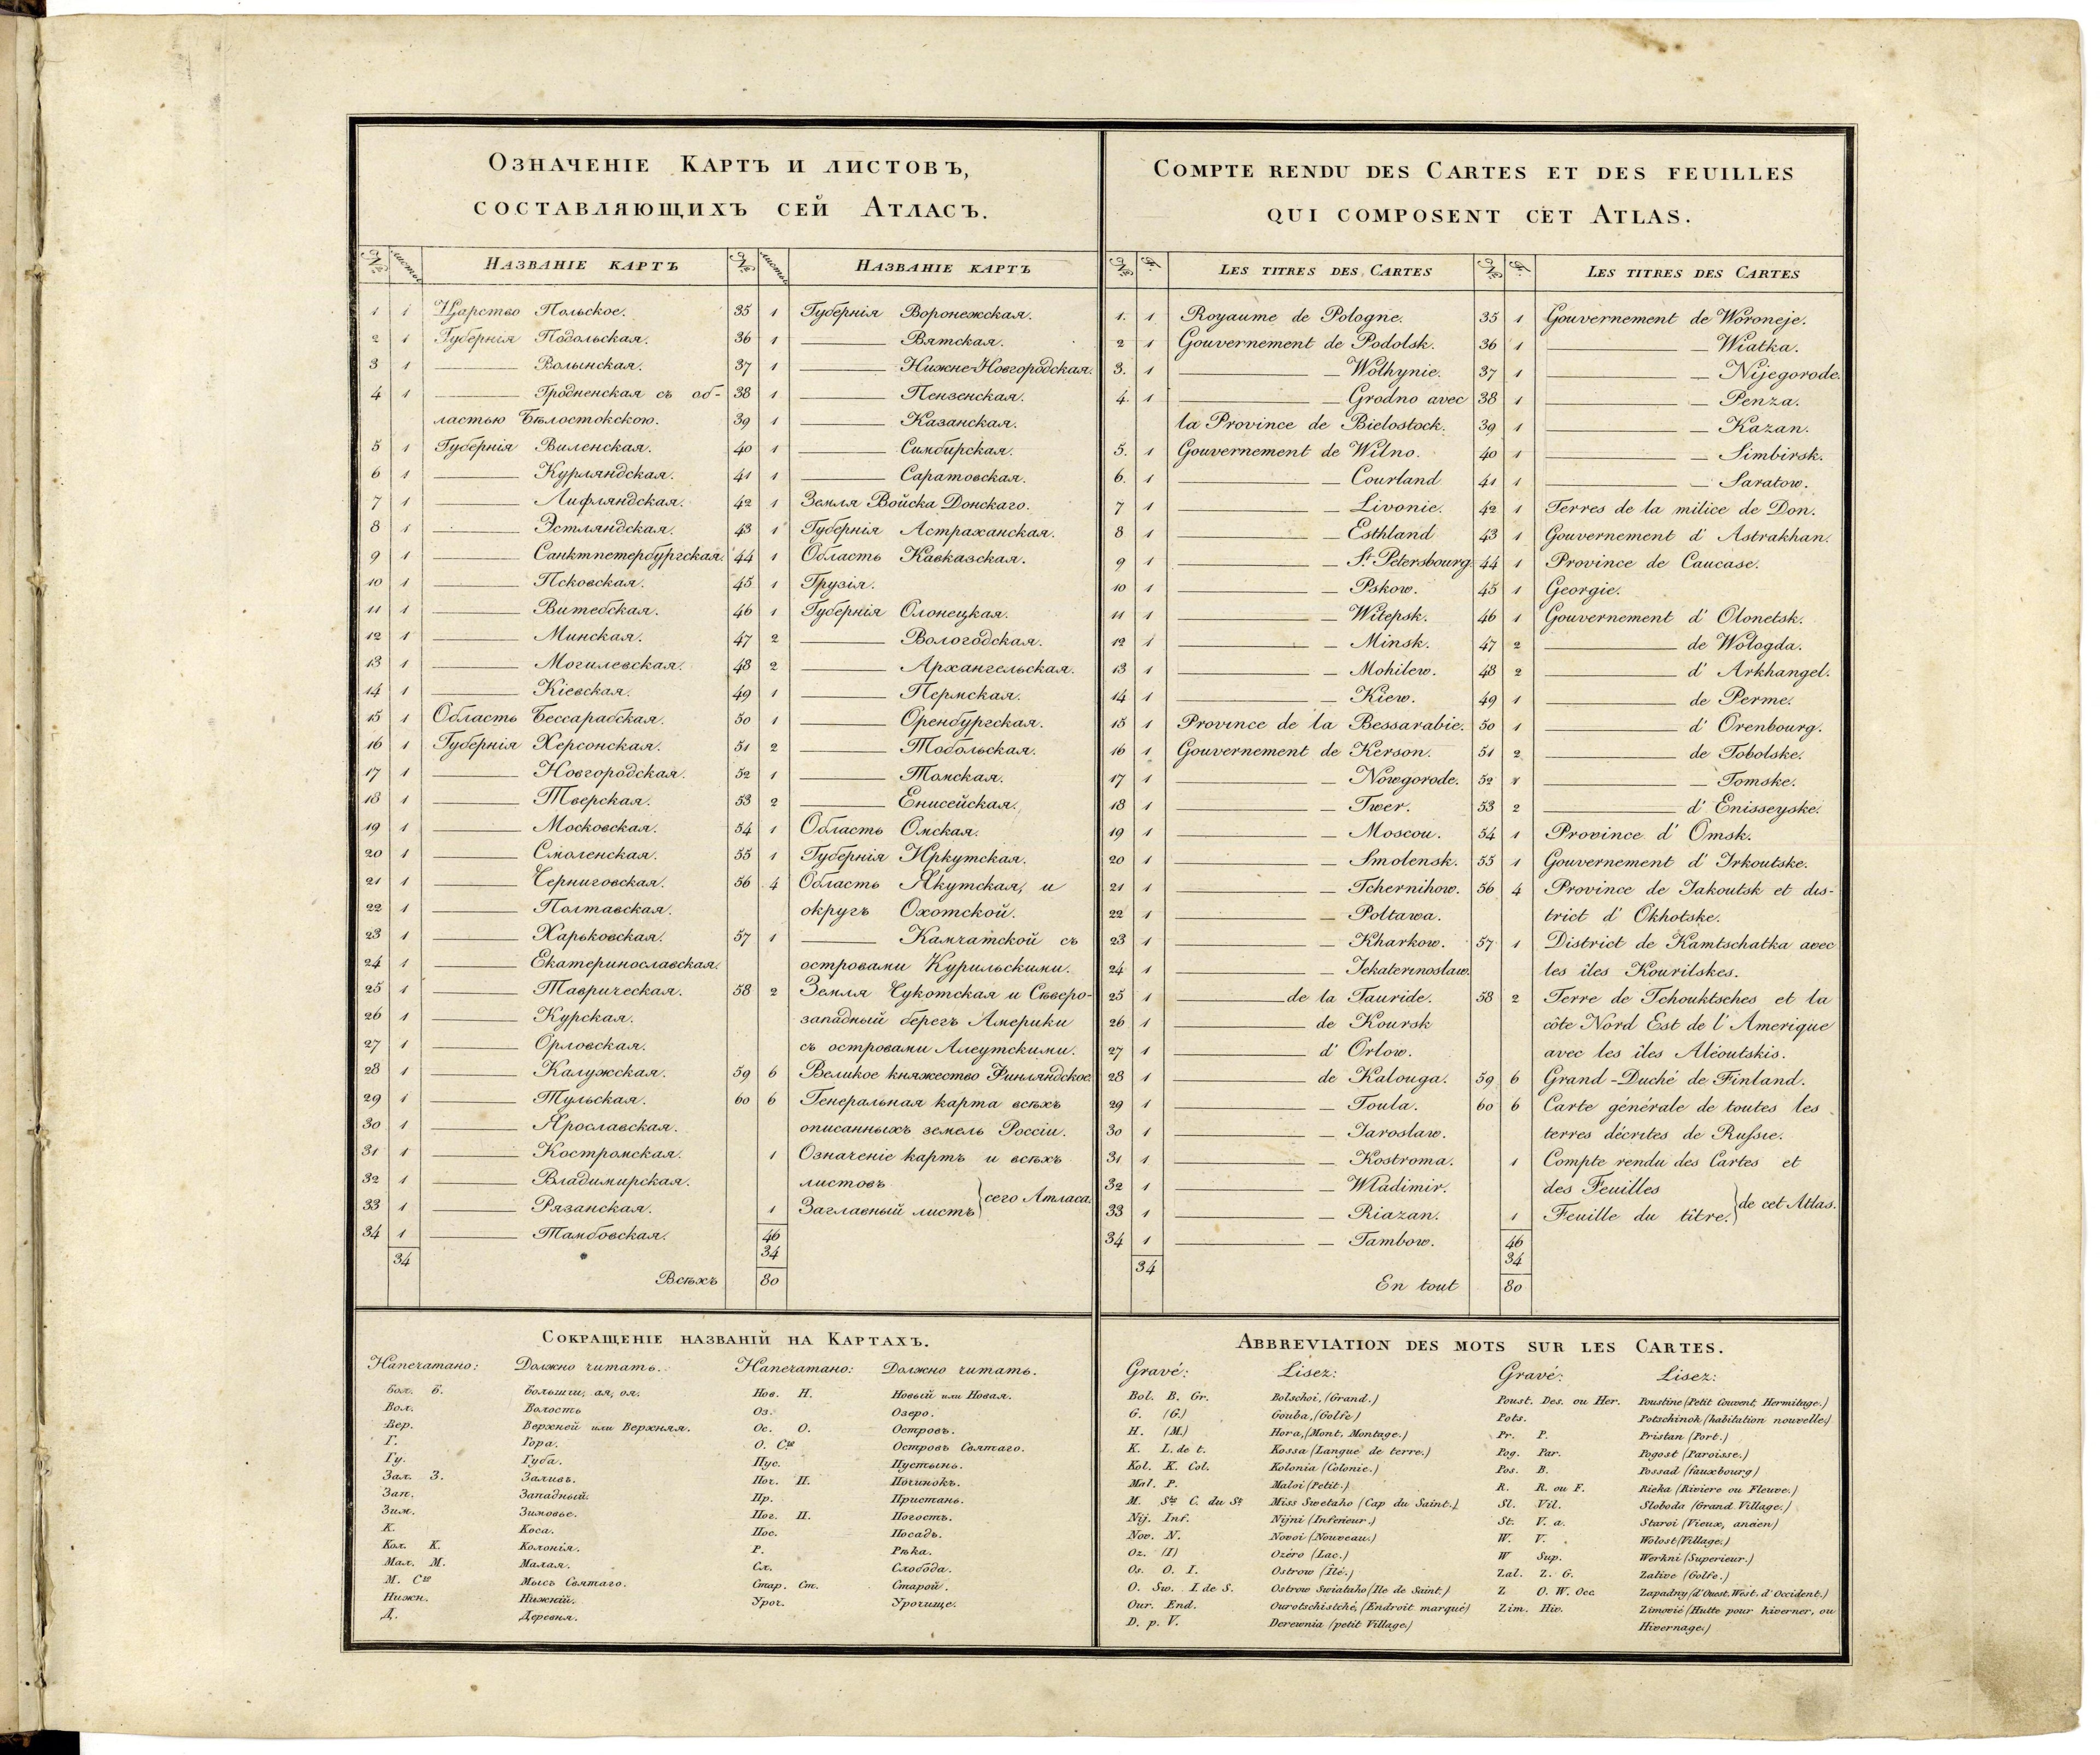 Означеніе Картъ и листовъ,
составляющихъ сей Атласъ.
№ листы Названіе картъ
1 1 Царство Польское.
2 1 Губернія Подольская.
3 1 ——— Волынская.
4 1 ——— Гродненская съ об-
ластью Бѣлостокскою.
5 1 Губернія Виленская.
6 1 ——— Курляндская.
7 1 ——— Лифляндская.
8 1 ——— Эстляндская.
9 1 ——— Санктпетербургская.
10 1 ——— Псковская.
11 1 ——— Витебская.
12 1 ——— Минская.
13 1 ——— Могилевская.
14 1 ——— Кіевская.
15 1 Область Бессарабская.
16 1 Губернія Херсонская.
17 1 ——— Новгородская.
18 1 ——— Тверская.
19 1 ——— Московская.
20 1 ——— Смоленская.
21 1 ——— Черниговская.
22 1 ——— Полтавская.
23 1 ——— Харьковская.
24 1 ——— Екатеринославская.
25 1 ——— Таврическая.
26 1 ——— Курская.
27 1 ——— Орловская.
28 1 ——— Калужская.
29 1 ——— Тульская.
30 1 ——— Ярославская.
31 1 ——— Костромская.
32 1 ——— Владимирская.
33 1 ——— Рязанская.
34 1 ——— Тамбовская.
34
№ листы Названіе картъ
35 1 Губернія Воронежская.
36 1 ——— Вятская.
37 1 ——— Нижне-Новгородская.
38 1 ——— Пензенская.
39 1 ——— Казанская.
40 1 ——— Симбирская.
41 1 ——— Саратовская.
42 1 Земля Войска Донскаго.
43 1 Губернія Астраханская.
44 1 Область Кавказская.
45 1 Грузія.
46 1 Губернія Олонецкая.
47 2 ——— Вологодская.
48 2 ——— Архангельская.
49 1 ——— Пермская.
50 1 ——— Оренбургская.
51 2 ——— Тобольская.
52 1 ——— Томская.
53 2 ——— Енисейская.
54 1 Область Омская.
55 1 Губернія Иркутская.
56 4 Область Якутская, и
округъ Охотской.
57 1 ——— Камчатской съ
островами Курильскими.
58 2 Земля Чукотская и Сѣверо-
западный берегъ Америки
съ островами Алеутскими.
59 6 Великое княжество Финляндское.
60 6 Генеральная карта всѣхъ
описанныхъ земель Россіи.
1 Означеніе картъ и всѣхъ
листовъ
1 Заглавный листъ } сего Атласа.
46
34
Всѣхъ 80
Compte rendu des Cartes et des feuilles
qui composent cet Atlas.
№ f. Les titres des Cartes
1. 1 Royaume de Pologne.
2 1 Gouvernement de Podolsk.
3. 1 ——— — Wolhynie.
4. 1 ——— — Grodno avec
la Province de Bielostock.
5. 1 Gouvernement de Wilno.
6. 1 ——— — Courland
7 1 ——— — Livonie.
8 1 ——— — Esthland
9 1 ——— — St. Petersbourg.
10 1 ——— — Pskow.
11 1 ——— — Witepsk.
12 1 ——— — Minsk.
13 1 ——— — Mohilew.
14 1 ——— — Kiew.
15 1 Province de la Bessarabie.
16 1 Gouvernement de Kerson.
17 1 ——— — Nowgorode.
18 1 ——— — Twer.
19 1 ——— — Moscou.
20 1 ——— — Smolensk.
21 1 ——— — Tchernihow.
22 1 ——— — Poltawa.
23 1 ——— — Kharkow.
24 1 ——— — Jekaterinoslaw.
25 1 ——— de la Tauride.
26 1 ——— de Koursk
27 1 ——— d' Orlow.
28 1 ——— de Kalouga.
29 1 ——— — Toula.
30 1 ——— — Jaroslaw.
31 1 ——— — Kostroma.
32 1 ——— — Wladimir.
33 1 ——— — Riazan.
34 1 ——— — Tambow.
34
№ f. Les titres des Cartes
35 1 Gouvernement de Woroneje.
36 1 ——— — Wiatka.
37 1 ——— — Nijegorode.
38 1 ——— — Penza.
39 1 ——— — Kazan.
40 1 ——— — Simbirsk.
41 1 ——— — Saratow.
42 1 Terres de la milice de Don.
43 1 Gouvernement d' Astrakhan.
44 1 Province de Caucase.
45 1 Georgie.
46 1 Gouvernement d' Olonetsk.
47 2 ——— de Wologda.
48 2 ——— d' Arkhangel.
49 1 ——— de Perme.
50 1 ——— d' Orenbourg.
51 2 ——— de Tobolske.
52 1 ——— — Tomske.
53 2 ——— d' Enisseyske.
54 1 Province d' Omsk.
55 1 Gouvernement d' Irkoutske.
56 4 Province de Jakoutsk et dis-
trict d' Okhotske.
57 1 District de Kamtschatka avec
les îles Kourilskes.
58 2 Terre de Tchouktsches et la
côte Nord Est de l' Amerique
avec les îles Aléoutskis.
59 6 Grand-Duché de Finland.
60 6 Carte générale de toutes les
terres décrites de Russie.
1 Compte rendu des Cartes et
des Feuilles
1 Feuille du titre. } de cet Atlas.
46
34
En tout 80
Сокращеніе названій на Картахъ.
Напечатано: Должно читать.
Бол. Б. Большіи, ая, ои.
Вол. Волость
Вер. Верхней или Верхняя.
Г. Гора.
Гу. Губа.
Зал. З. Заливъ.
Зап. Западный.
Зим. Зимовье.
К. Коса.
Кол. К. Колонія.
Мал. М. Малая.
М. Сго Мысъ Святаго.
Нижн. Нижній.
Д. Деревня.
Напечатано: Должно читать.
Нов. Н. Новый или Новая.
Оз. Озеро.
Ос. О. Островъ.
О. Сго Островъ Святаго.
Пус. Пустынь.
Поч. П. Починокъ.
Пр. Пристань.
Пог. П. Погостъ.
Пос. Посадъ.
Р. Рѣка.
Сл. Слобода.
Стар. Ст. Старой.
Уроч. Урочище.
Abbreviation des mots sur les Cartes.
Gravé: Lisez:
Bol. B. Gr. Bolschoi, (Grand.)
G. (G.) Gouba, (Golfe)
H. (M.) Hora, (Mont. Montage.)
K. L. de t. Kossa (Langue de terre.)
Kol. K. Col. Kolonia (Colonie.)
Mal. P. Maloi (Petit.)
M. Sto C. du St Miss Swetaho (Cap du Saint.)
Nij. Inf. Nijni (Inferieur.)
Nov. N. Novoi (Nouveau.)
Oz. (I) Ozéro (Lac.)
Os. O. I. Ostrow (Îlé.)
O. Sw. I. de S. Ostrow Swiataho (Ile de Saint.)
Our. End. Ourotschistché, (Endroit marqué)
D. p. V. Derewnia (petit Village.)
Gravé: Lisez:
Poust. Des. ou Her. Poustine (Petit Couvent, Hermitage.)
Pots. Potschinok (habitation nouvelle.)
Pr. P. Pristan (Port.)
Pog. Par. Pogost (Paroisse.)
Pos. B. Possad (fauxbourg)
R. R. ou F. Rieka (Riviere ou Fleuve.)
Sl. Vil. Sloboda (Grand Village.)
St. V. a. Staroi (Vieux, ancien)
W. V. Wolost (Village.)
W Sup. Werhni (Superieur.)
Zal. Z. G. Zalive (Golfe.)
Z O. W. Occ. Zapadny (d'Ouest. West. d'Occident.)
Zim. Hiv. Zimovié (Hutte pour hiverner, ou
Hivernage.)